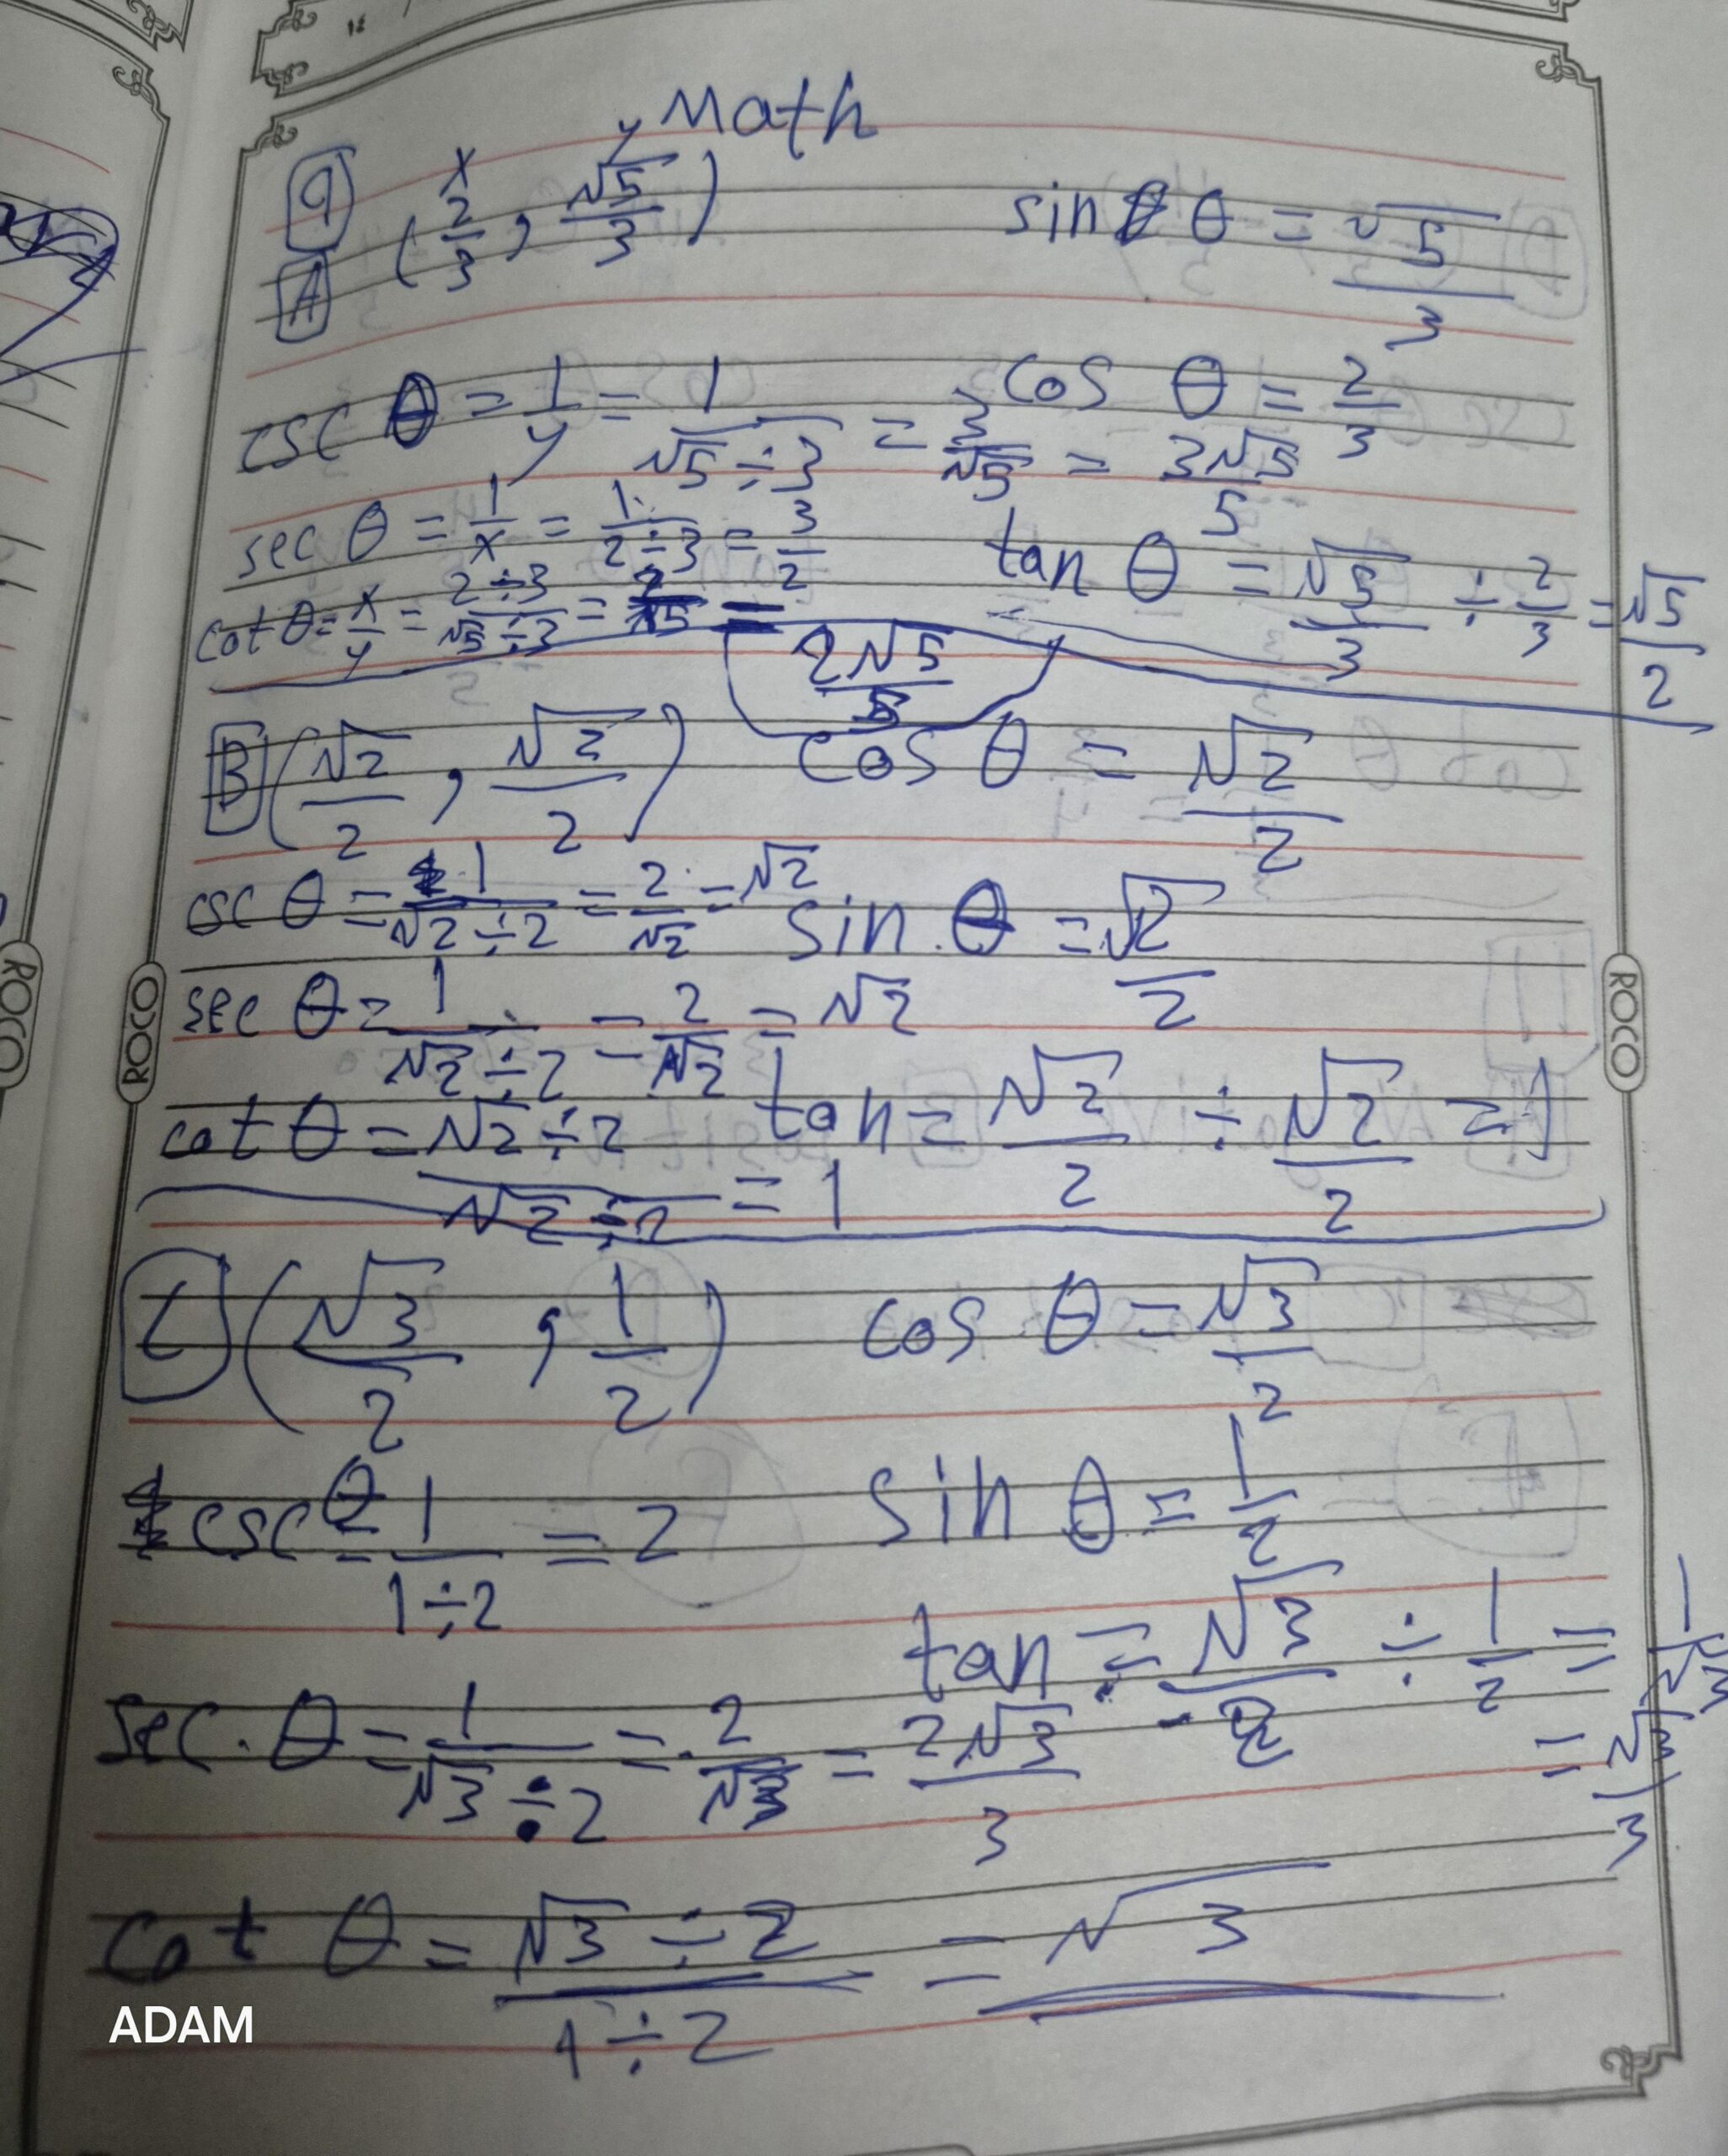 Math
9
x y
A (2/3, √5/3) sin θ = √5/3
csc θ = 1/y = 1/(√5÷3) = 3/√5 = 3√5/5
cos θ = 2/3
sec θ = 1/x = 1/(2÷3) = 3/2
tan θ = √5/3 ÷ 2/3 = √5/2
cot θ = x/y = (2÷3)/(√5÷3) = 2/√5 = 2√5/5
B (√2/2, √2/2) cos θ = √2/2
csc θ = 1/(√2÷2) = 2/√2 = √2
sin θ = √2/2
sec θ = 1/(√2÷2) = 2/√2 = √2
tan = √2/2 ÷ √2/2 = 1
cot θ = (√2÷2)/(√2÷2) = 1
C (√3/2, 1/2) cos θ = √3/2
csc θ = 1/(1÷2) = 2
sin θ = 1/2
tan = √3/2 ÷ 1/2 = 1/√3
= √3/3
sec. θ = 1/(√3÷2) = 2/√3 = 2√3/3
cot θ = (√3÷2)/(1÷2) = √3
ADAM
ROCO
ROCO
ROCO